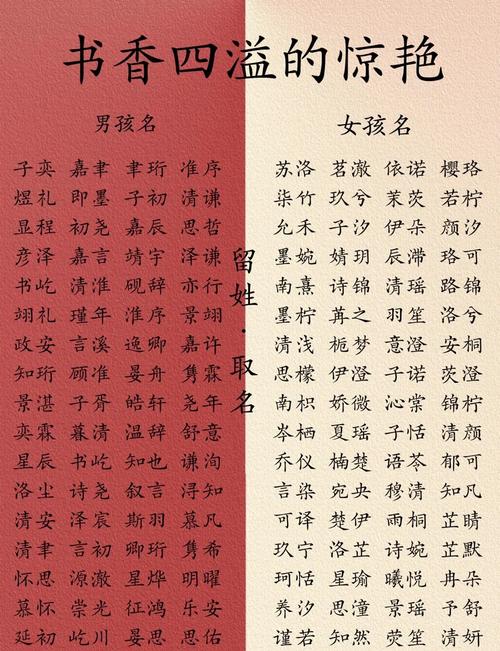 书香四溢的惊艳
男孩名
子奕 嘉聿 聿珩 准序
煜礼 即墨 子初 清谦
显程 初尧 嘉辰 思哲
彦泽 嘉言 靖宇 泽谦
书屹 清淮 砚辞 亦行
翊礼 瑾年 淮序 景翊
政安 言溪 逸卿 嘉许
知珩 顾淮 晏舟 隽霖
景湛 子胥 皓轩 尧年
奕霖 暮清 温辞 舒意
星辰 书屹 知也 谦洵
洛尘 诗尧 叙言 浔知
清安 泽宸 斯羽 慕凡
清聿 言初 卿珩 隽希
怀思 源澈 星烨 明曜
慕怀 崇光 征鸿 乐安
延初 屹川 晏思 思佑
留姓·取名
女孩名
苏洛 茗澈 依诺 樱珞
柒竹 玖兮 茉茨 若柠
允禾 子汐 伊朵 颜汐
墨婉 婧玥 辰滞 珞可
南熹 诗锦 清瑶 路锦
墨柠 苒之 羽笙 洛兮
清浅 栀梦 意澄 安桐
思檬 伊澄 子诺 茨澄
南枳 娇微 沁棠 锦柠
岑栖 夏瑶 子恬 清颜
乔仪 楠楚 语苓 郁可
言染 宛央 穆清 知凡
可译 楚伊 雨桐 芷晴
玖宁 洛芷 诗婉 芷默
珂恬 星瑜 曦悦 冉朵
养汐 思潼 景瑶 予舒
谨若 知然 荧笙 清妍